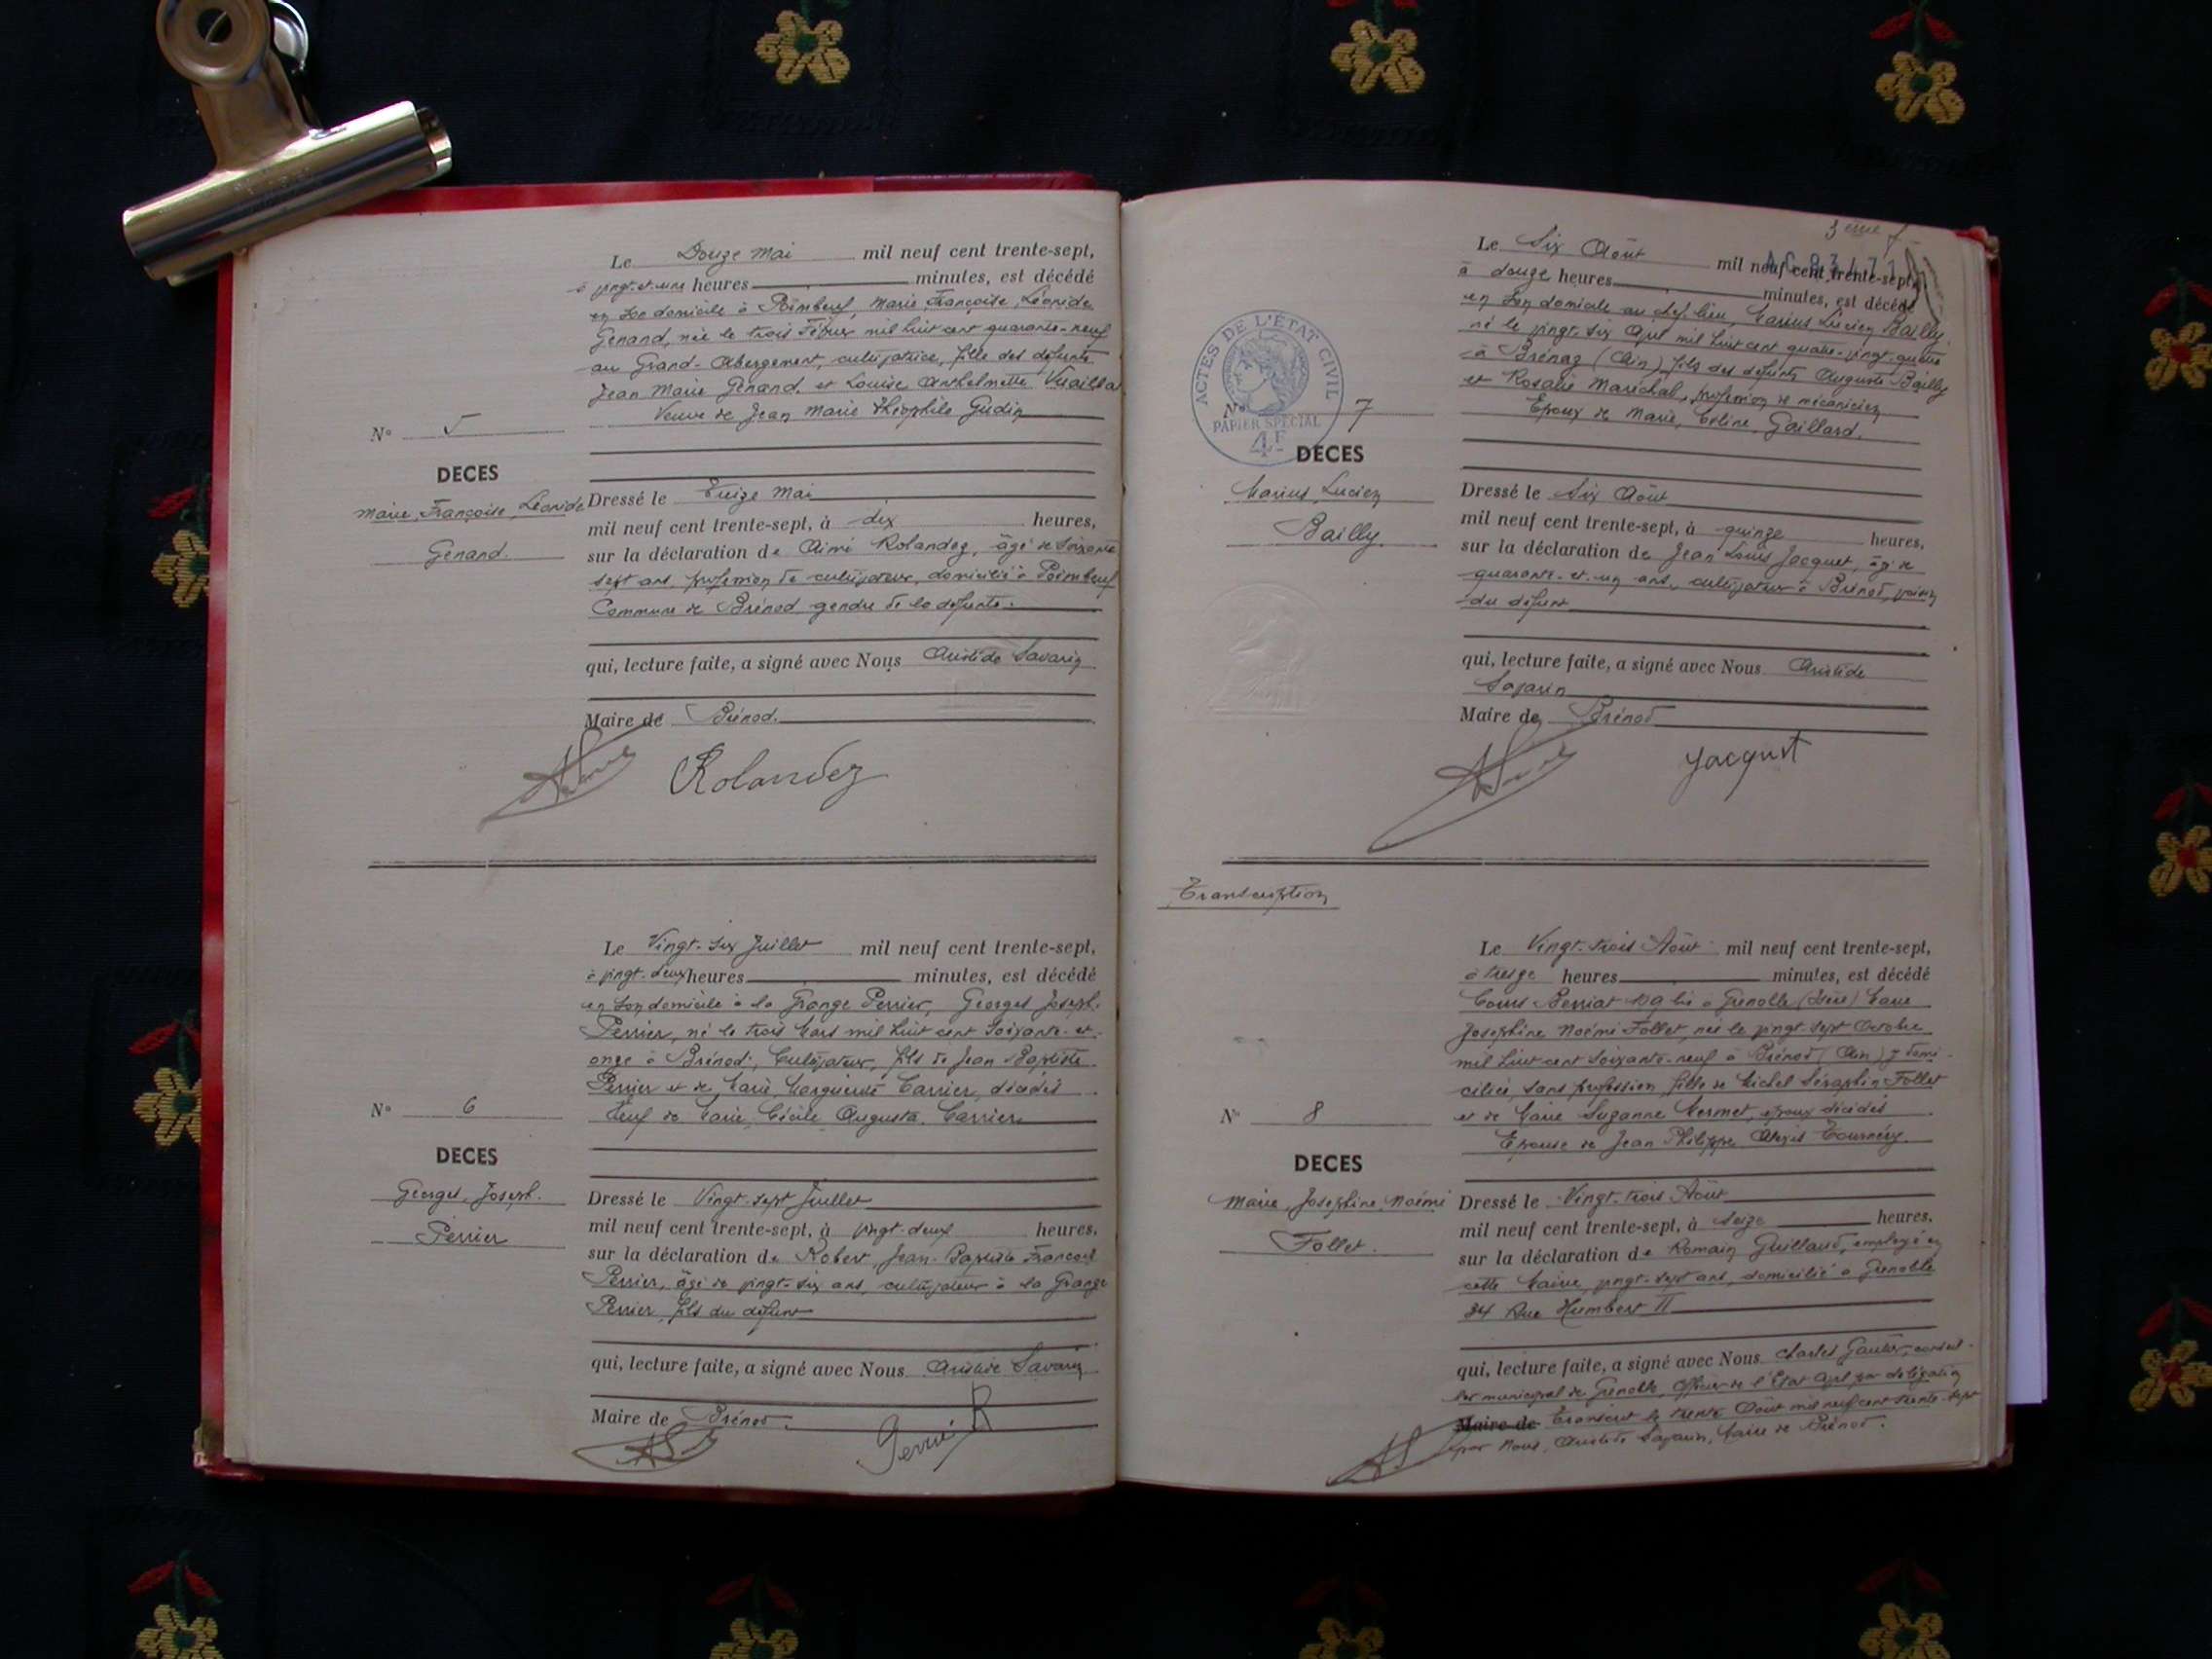 Le Douze Mai mil neuf cent trente-sept,
à vingt-et-une heures minutes, est décédé
en son domicile à Poimbeuf, Marie, Françoise, Léonide
Genand, née le trois Février mil huit cent quarante-neuf
au Grand-Abergement, cultivatrice, fille des défunts
Jean Marie Genand, et Louise Anthelmette
Veuve de Jean Marie Théophile Gudin
N° 5
DECES
Marie, Françoise, Léonide
Genand.
Dressé le Treize Mai
mil neuf cent trente-sept, à dix heures,
sur la déclaration de Aimé Rolandez, âgé de soixante
sept ans, profession de cultivateur, domicilié à Poimbeuf
Commune de Brénod gendre de la défunte.
qui, lecture faite, a signé avec Nous Aristide Savarin
Maire de Brénod.
Rolandez
Le Vingt-six Juillet mil neuf cent trente-sept,
à vingt-deux heures minutes, est décédé
en son domicile à la Grange Perrier, Georges Joseph.
Perrier, né le trois Mars mil huit cent soixante-et-
onze à Brénod, Cultivateur, fils de Jean Baptiste
Perrier et de Marie Marguerite Carrier, décédés
Veuf de Marie, Cécile Augusta, Carrier
N° 6
DECES
Georges, Joseph.
Perrier
Dressé le Vingt-sept Juillet
mil neuf cent trente-sept, à vingt-deux heures,
sur la déclaration de Robert, Jean-Baptiste Francois
Perrier, âgé de vingt-six ans, cultivateur à la Grange
Perrier, fils du défunt
qui, lecture faite, a signé avec Nous Aristide Savarin
Maire de Brénod.
Perrier R
3ème f
Le Six Août mil neuf cent trente-sept,
à douze heures minutes, est décédé
en son domicile au chef-lieu, Marius Lucien Bailly.
né le vingt-six Avril mil huit cent quatre-vingt-quatre
à Brénaz (Ain) fils des défunts Auguste Bailly
et Rosalie Maréchal, profession de mécanicien
Epoux de Marie, Céline, Gaillard.
ACTES DE L'ÉTAT CIVIL
PAPIER SPÉCIAL
4F
N° 7
DECES
Marius, Lucien
Bailly.
Dressé le Six Août
mil neuf cent trente-sept, à quinze heures,
sur la déclaration de Jean Louis Jacquet, âgé de
quarante-et-un ans, cultivateur à Brénod, voisin
du défunt
qui, lecture faite, a signé avec Nous Aristide
Savarin
Maire de Brénod
Jacquet
Transcription
Le Vingt-trois Août mil neuf cent trente-sept,
à treize heures minutes, est décédé
Cours Berriat 109 bis à Grenoble (Isère) Marie
Joséphine Noémi Follet, née le vingt sept Octobre
mil huit cent soixante-neuf à Brénod (Ain) y domi-
ciliée, sans profession, fille de Michel Séraphin Follet
et de Marie Suzanne Mermet, époux décédés
Epouse de Jean Philippe Alexis Tournéry.
N° 8
DECES
Marie, Joséphine, Noémi
Follet.
Dressé le Vingt-trois Août
mil neuf cent trente-sept, à seize heures.
sur la déclaration de Romain Guillaud, employé en
cette Mairie, vingt-sept ans, domicilié à Grenoble
34 Rue Humbert II
qui, lecture faite, a signé avec Nous Charles Gautier, conseil-
ler municipal de Grenoble, Officier de l'Etat Civil par délégation
Maire de Transcrit le trente Août mil neuf cent trente-sept
par Nous, Aristide Savarin, Maire de Brénod.